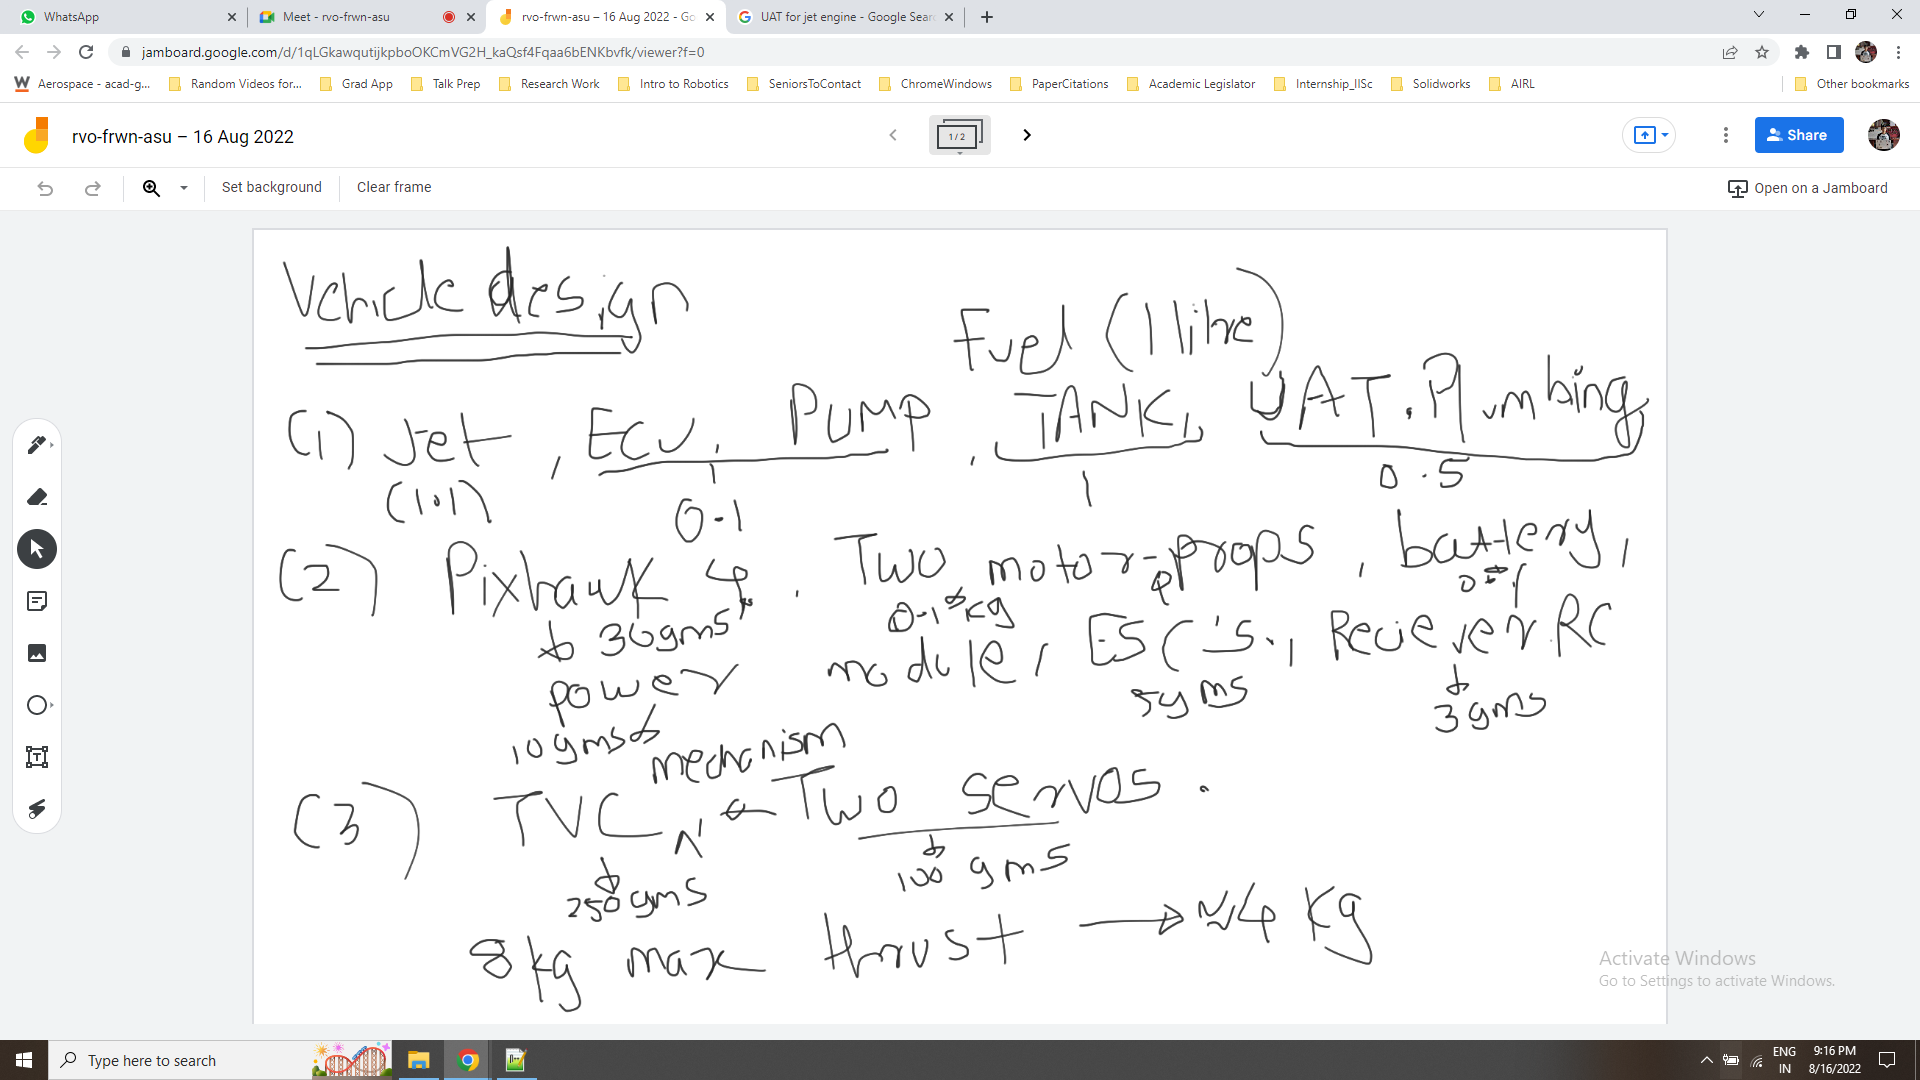 WhatsApp
Meet - rvo-frwn-asu
rvo-frwn-asu – 16 Aug 2022 - Go
UAT for jet engine - Google Sear
jamboard.google.com/d/1qLGkawqutijkpboOKCmVG2H_kaQsf4Fqaa6bENKbvfk/viewer?f=0
Aerospace - acad-g... Random Videos for... Grad App Talk Prep Research Work Intro to Robotics SeniorsToContact ChromeWindows PaperCitations Academic Legislator Internship_IISc Solidworks AIRL Other bookmarks
rvo-frwn-asu – 16 Aug 2022
1 / 2
Share
Set background Clear frame
Open on a Jamboard
Vehicle design
Fuel (1 litre)
(1) Jet, ECU, PUMP, TANK, UAT, Plumbing,
(1.1) 0.1 1 0.5
(2) Pixhawk 4, Two motor-props, battery,
30gms 0.1 kg
power module, ESC's, Reciever RC
10gms 5gms 3gms
mechanism
(3) TVC Two servos.
250gms 100 gms
8kg max thrust → ≈4 Kg
Activate Windows
Go to Settings to activate Windows.
Type here to search
ENG
IN
9:16 PM
8/16/2022